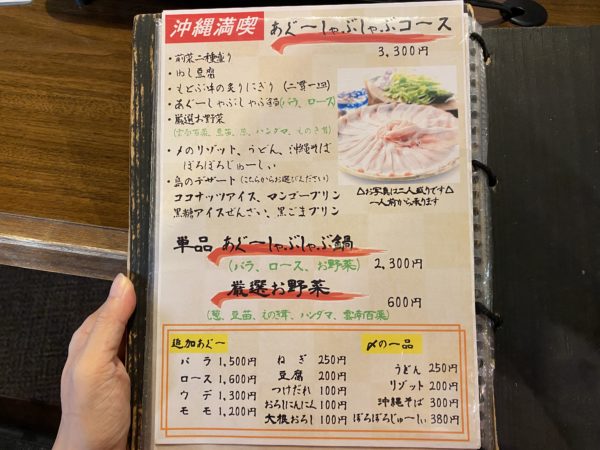 沖縄満喫 あぐーしゃぶしゃぶコース
3,300円
・前菜二種盛り
・ゆし豆腐
・もとぶ牛の炙りにぎり(二貫一皿)
・あぐーしゃぶしゃぶ(バラ、ロース)
・厳選お野菜
(雲南百菜、豆苗、葱、ハンダマ、えのき茸)
・〆のリゾット、うどん、沖縄そば
ぼろぼろじゅーしぃ
・島のデザート(こちらからお選びください)
ココナッツアイス、マンゴープリン
黒糖アイスぜんざい、黒ごまプリン
△お写真は二人盛りです△
一人前から承ります
単品 あぐーしゃぶしゃぶ鍋
(バラ、ロース、お野菜) 2,300円
厳選お野菜 600円
(葱、豆苗、えのき茸、ハンダマ、雲南百菜)
追加あぐー
バラ 1,500円
ロース 1,600円
ウデ 1,300円
モモ 1,200円
ねぎ 250円
豆腐 200円
つけだれ 100円
おろしにんにく 100円
大根おろし 100円
〆の一品
うどん 250円
リゾット 200円
沖縄そば 300円
ぼろぼろじゅ〜しぃ 380円